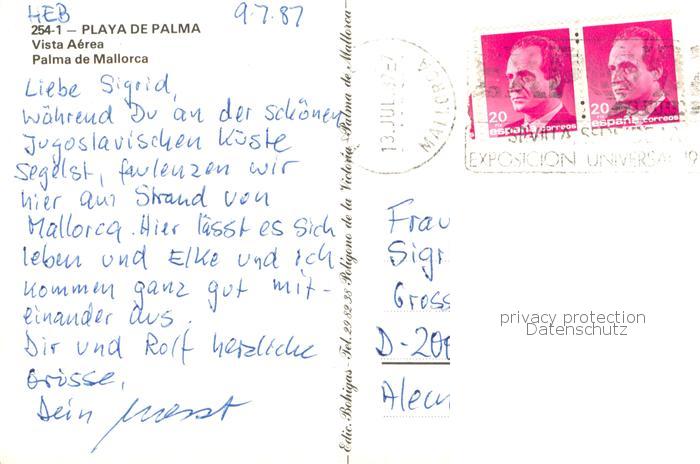 HEB 9.7.87
254-1 — PLAYA DE PALMA
Vista Aérea
Palma de Mallorca
Liebe Sigrid,
während Du an der schönen
Jugoslavischen Küste
segelst, faulenzen wir
hier am Strand von
Mallorca. Hier lässt es sich
leben und Elke und ich
kommen ganz gut mit-
einander aus.
Dir und Rolf herzliche
Grüsse,
Dein
Edic. Bohigas - Tel. 29 82 35 Polígono de la Victoria - Palma de Mallorca
13 JUL 87
MALLORCA
20 20
españa correos españa correos
SEVILLA SEDE
EXPOSICION UNIVERSAL 19
Frau
Sigr
Gross
D-200
Alem
privacy protection
Datenschutz